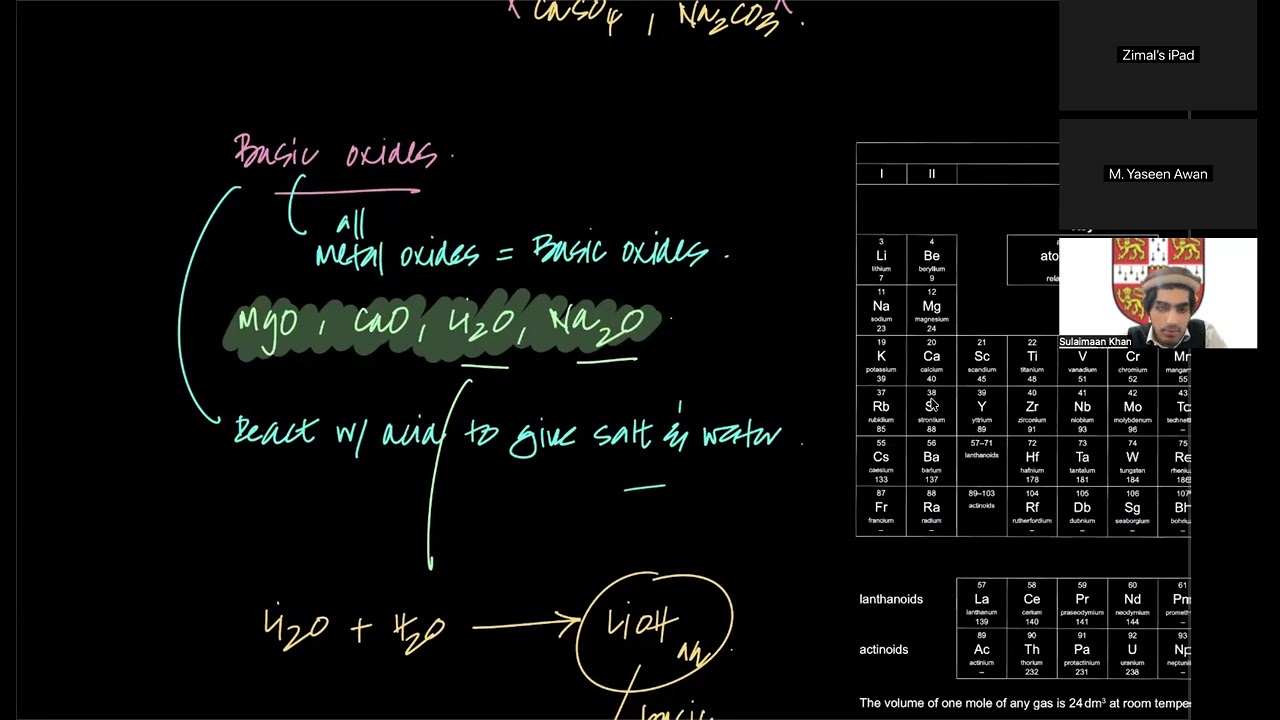 CaSO4 , Na2CO3 .
Basic oxides .
all
Metal oxides = Basic oxides .
MgO , CaO , Li2O , Na2O .
React w/ acid to give salt & water .
Li2O + H2O → LiOH aq .
basic
I II
3 4
Li Be
lithium beryllium
7 9
11 12
Na Mg
sodium magnesium
23 24
19 20 21 22
K Ca Sc Ti V Cr Mn
potassium calcium scandium titanium vanadium chromium
39 40 45 48 51 52 55
37 38 39 40 41 42 43
Rb Sr Y Zr Nb Mo Tc
rubidium strontium yttrium zirconium niobium molybdenum
85 88 89 91 93 96
55 56 57–71 72 73 74 75
Cs Ba lanthanoids Hf Ta W Re
caesium barium hafnium tantalum tungsten
133 137 178 181 184 186
87 88 89–103 104 105 106 107
Fr Ra actinoids Rf Db Sg Bh
francium radium rutherfordium dubnium seaborgium
– – – – –
57 58 59 60 61
lanthanoids La Ce Pr Nd Pm
lanthanum cerium praseodymium neodymium
139 140 141 144
89 90 91 92 93
actinoids Ac Th Pa U Np
actinium thorium protactinium uranium
– 232 231 238
The volume of one mole of any gas is 24 dm³ at room tempe
Zimal's iPad
M. Yaseen Awan
Sulaimaan Khan